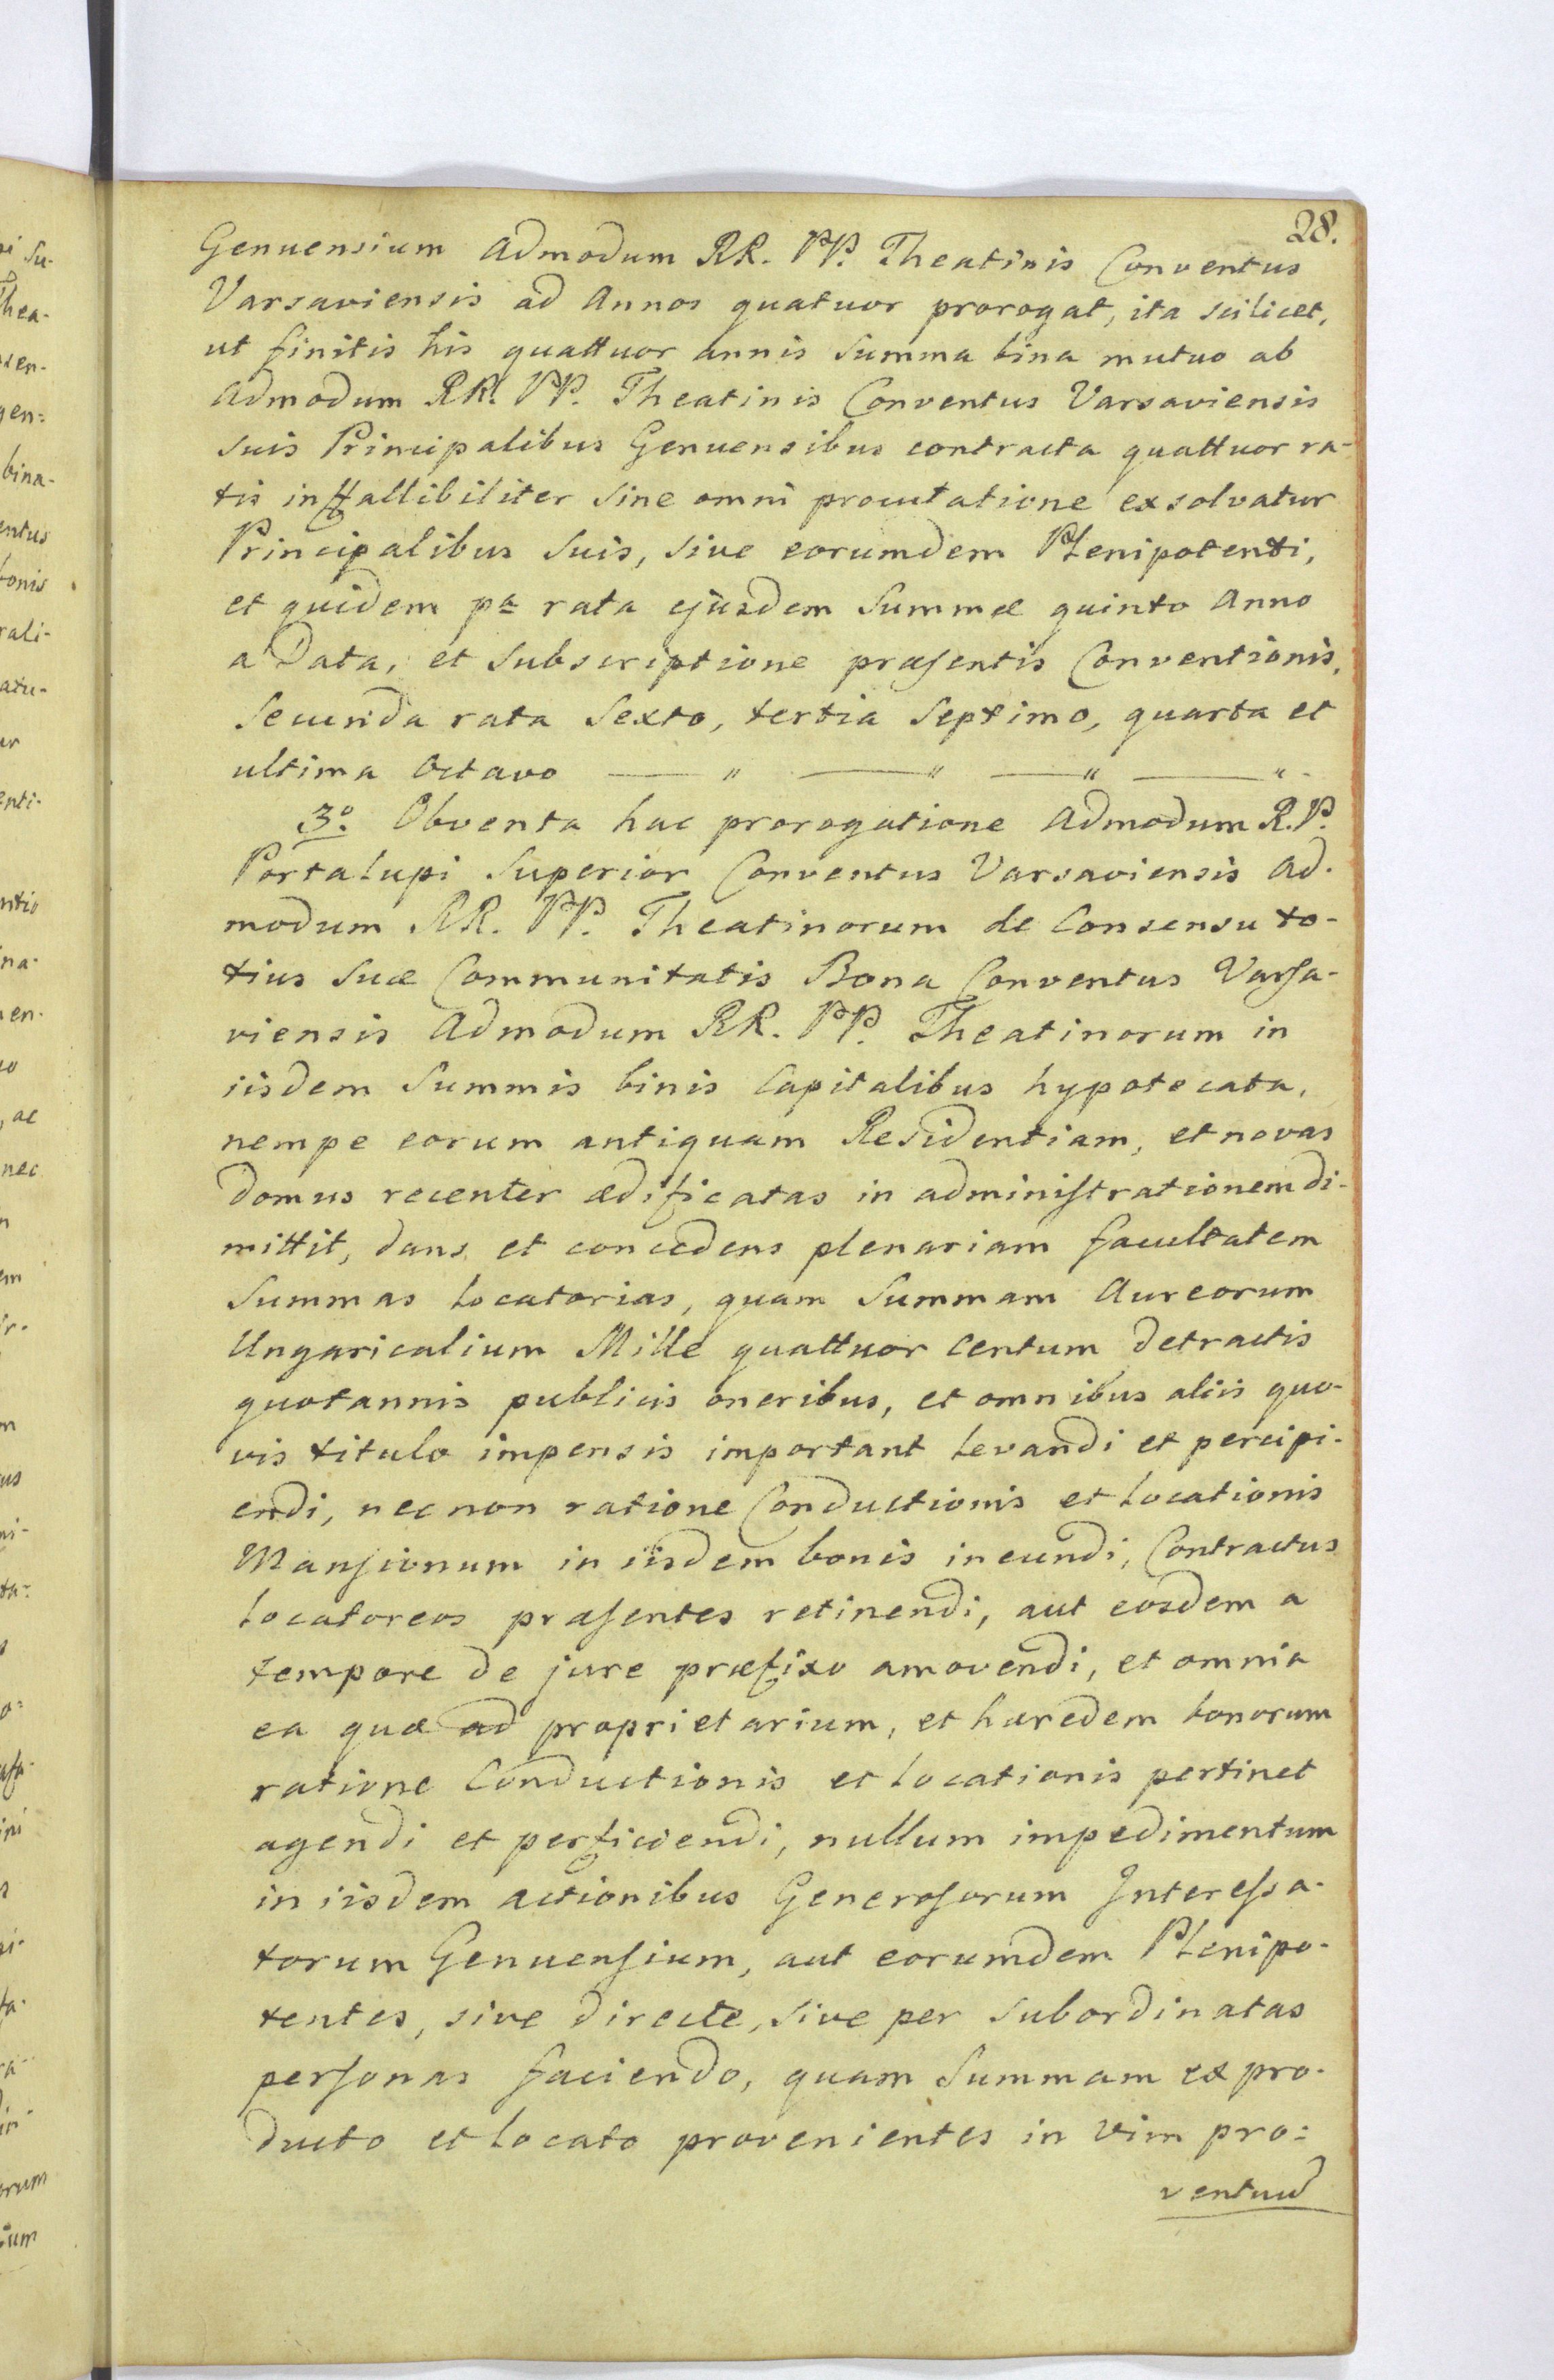 28.
Genuensium Admodum RR. PP. Theatinis Conventus
Varsaviensis ad Annos quatuor prorogat, ita scilicet,
ut finitis his quattuor annis Summa bina mutuo ab
Admodum RR. PP. Theatinis Conventus Varsaviensis
suis Principalibus Genuensibus contracta quattuor ra-
tis infallibiliter Sine omni procutatione exsolvatur
Principalibus Suis, sive eorumdem Plenipotenti,
et quidem pa rata ejusdem Summæ quinto Anno
a Data, et Subscriptione præsentis Conventionis,
Secunda rata Sexto, tertia Septimo, quarta et
ultima Octavo — " — " — " — "
3º. Obventa hac prorogatione Admodum R.P.
Portalupi Superior Conventus Varsaviensis Ad-
modum RR. PP. Theatinorum de Consensu to-
tius Suæ Communitatis Bona Conventus Varsa-
viensis Admodum RR. PP. Theatinorum in
iisdem Summis binis Capitalibus hypotecata,
nempe eorum antiquam Residentiam, et novas
domus recenter ædificatas in administrationem di-
mittit, dans et concedens plenariam facultatem
Summas locatorias, quam Summam Aureorum
Ungaricalium Mille quattuor Centum detractis
quotannis publicis oneribus, et omnibus aliis quo-
vis titulo impensis important levandi et percipi-
endi, nec non ratione Conductionis et locationis
Mansionum in iisdem bonis ineundi, Contractus
locatoreos præsentes retinendi, aut eosdem a
tempore de jure præfixo amovendi, et omnia
ea quæ ad proprietarium, et hæredem bonorum
ratione Conductionis et locationis pertinet
agendi et perficiendi, nullum impedimentum
in iisdem actionibus Generosorum Interessa-
torum Genuensium, aut eorumdem Plenipo-
tentes, sive directe, sive per subordinatas
personas faciendo, quam Summam ex pro-
ducto et locato provenientes in vim pro:
ventuum